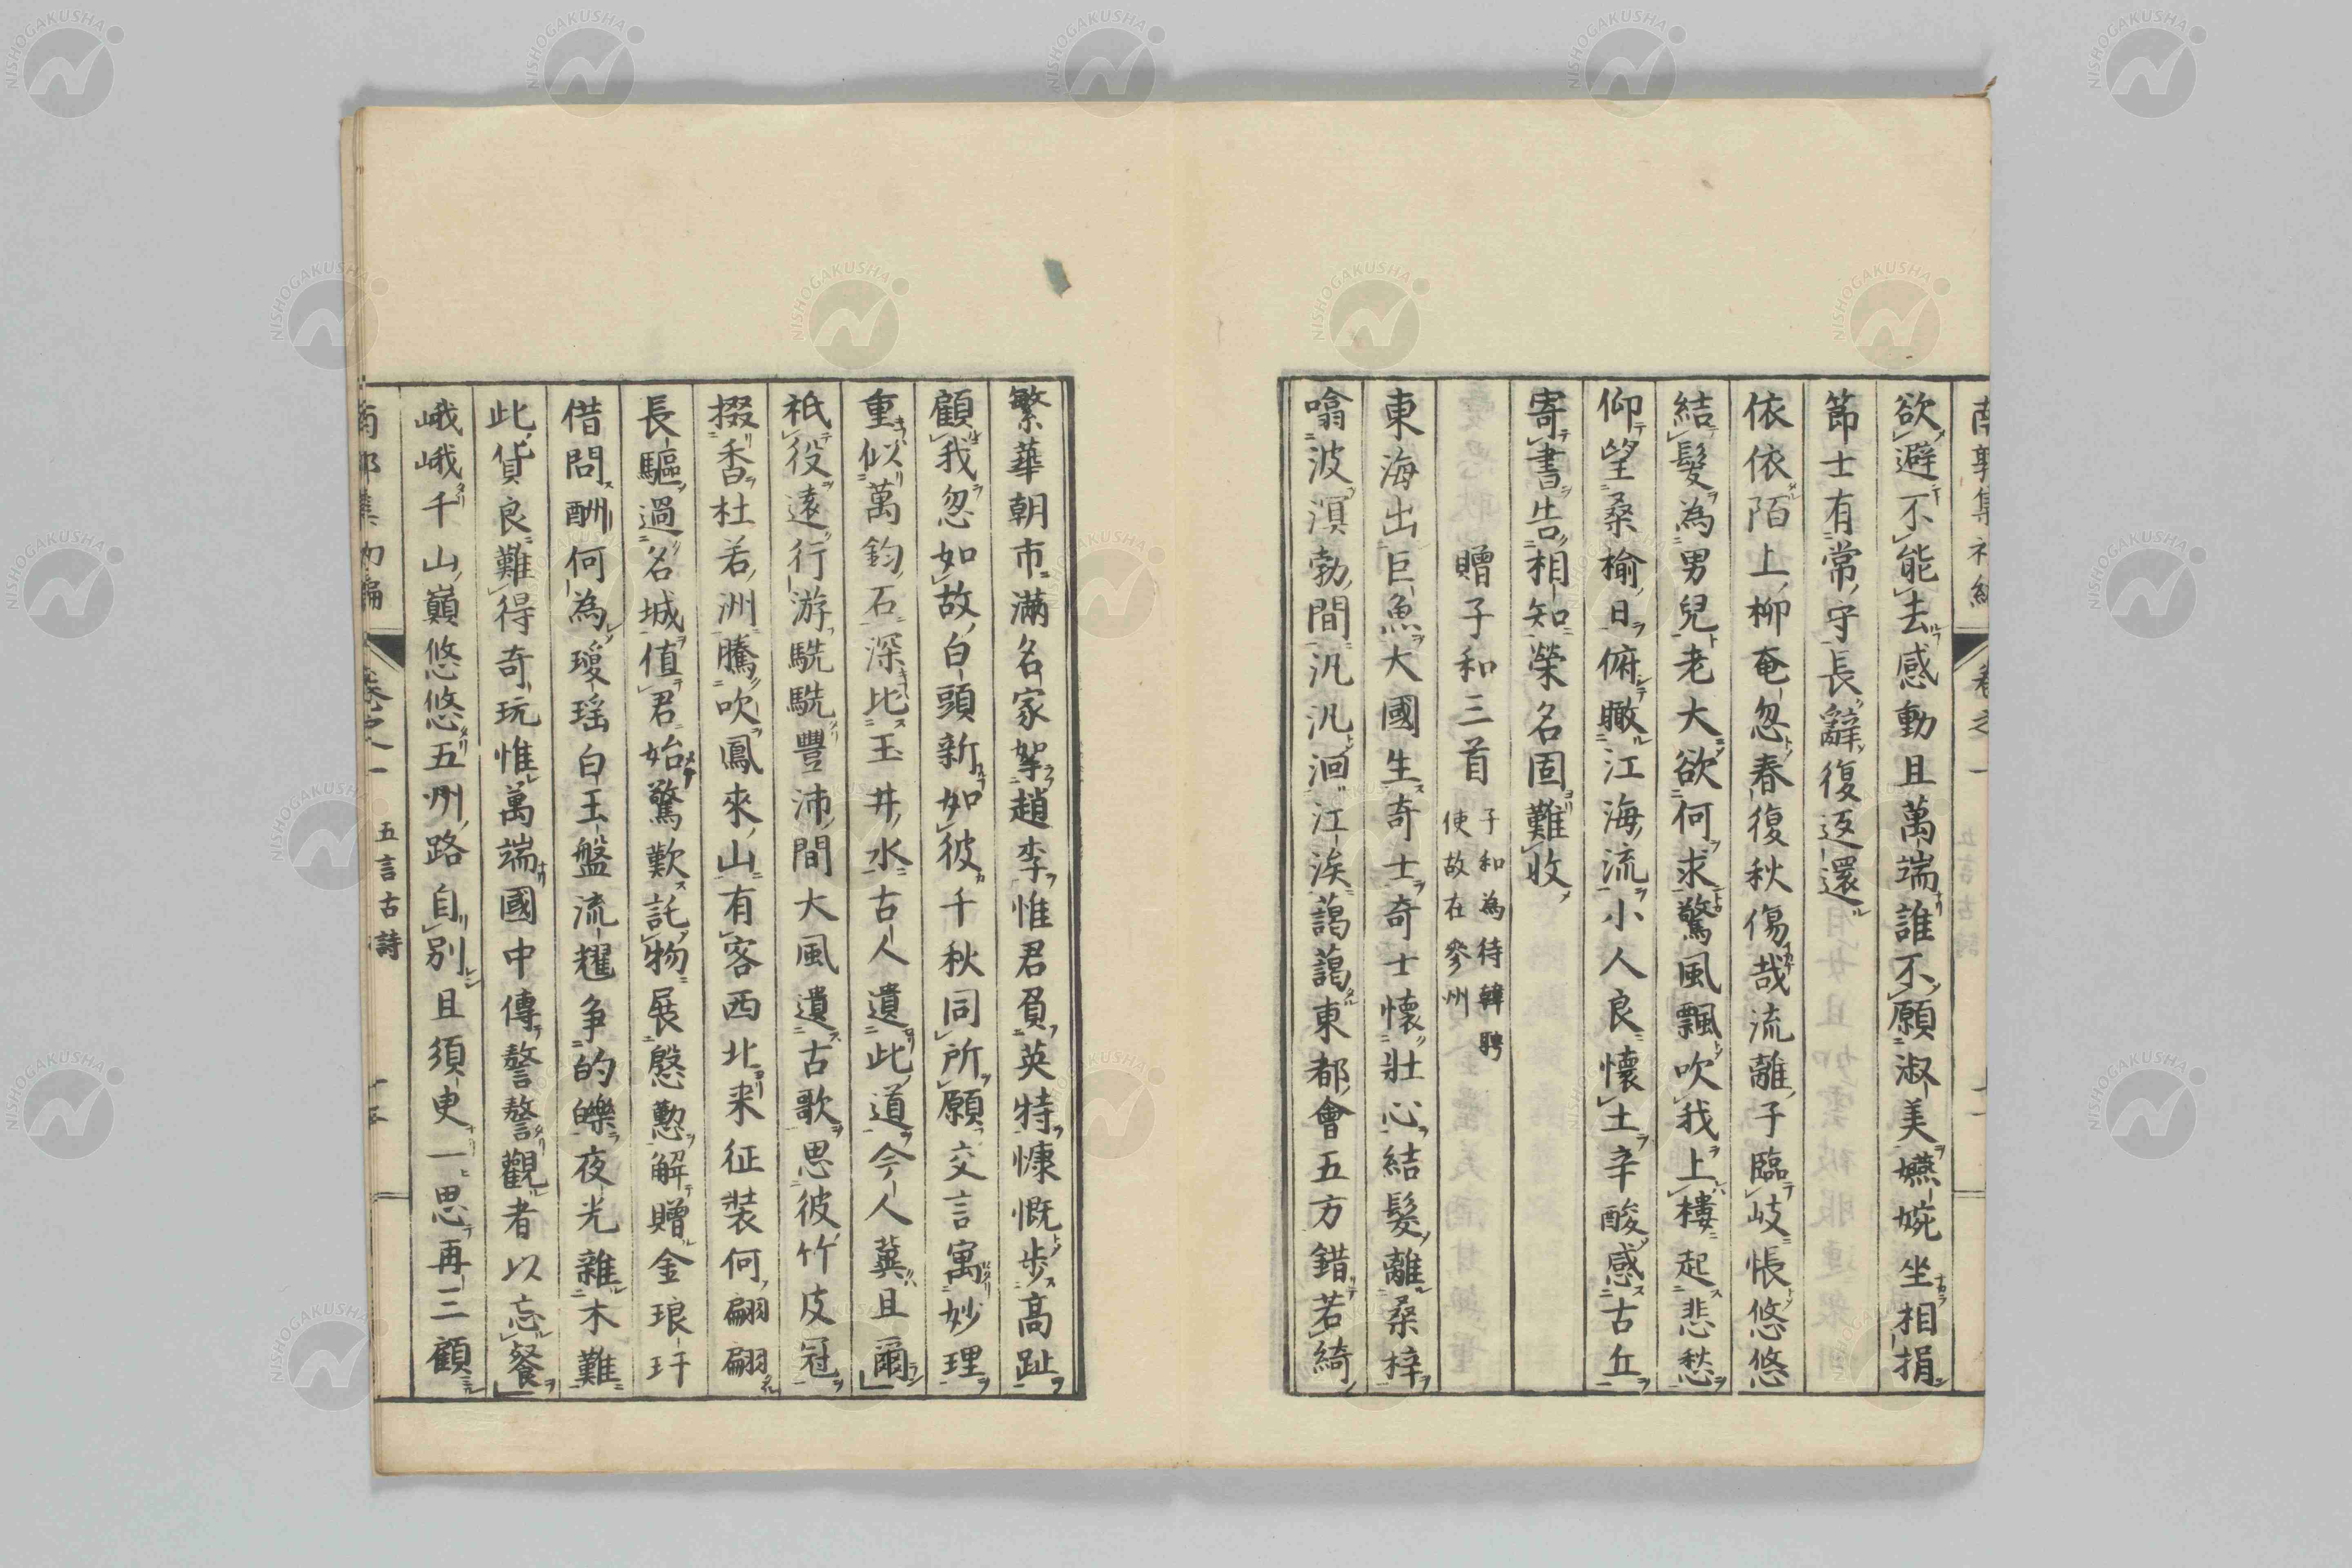 欲避不能去感動且萬端誰不願淑美嬿婉坐相捐
節士有常守長辭復返還
依依陌上柳奄忽春復秋傷哉流離子臨岐悵悠悠
結髮為男兒老大欲何求驚風飄吹我上樓起悲愁
仰望桑榆日俯瞰江海流小人良懷土辛酸感古丘
寄書告相知榮名固難收
贈子和三首
子和為待韓聘
使故在參州
東海出巨魚大國生奇士奇士懷壯心結髮離桑梓
噏波溟勃間汎汎洄江涘藹藹東都會五方錯若綺
繁華朝市滿名家挐趙李惟君負英特慷慨步高趾
顧我忽如故白頭新如彼千秋同所願交言寓妙理
重似萬鈞石深比玉井水古人遺此道今人冀且爾
祇役遠行游駪駪豐沛間大風遺古歌思彼竹皮冠
掇香杜若洲騰吹鳳來山有客西北来征装何翩翩
長驅過名城值君始驚歎託物展慇懃解贈金琅玕
借問酬何為瓊瑶白玉盤流耀争的皪夜光雜木難
此貨良難得奇玩惟萬端國中傳謷謷觀者以忘餐
峨峨千山巔悠悠五州路自別且須臾一思再三顧
卷之一
五言古詩
NISHOGAKUSHA